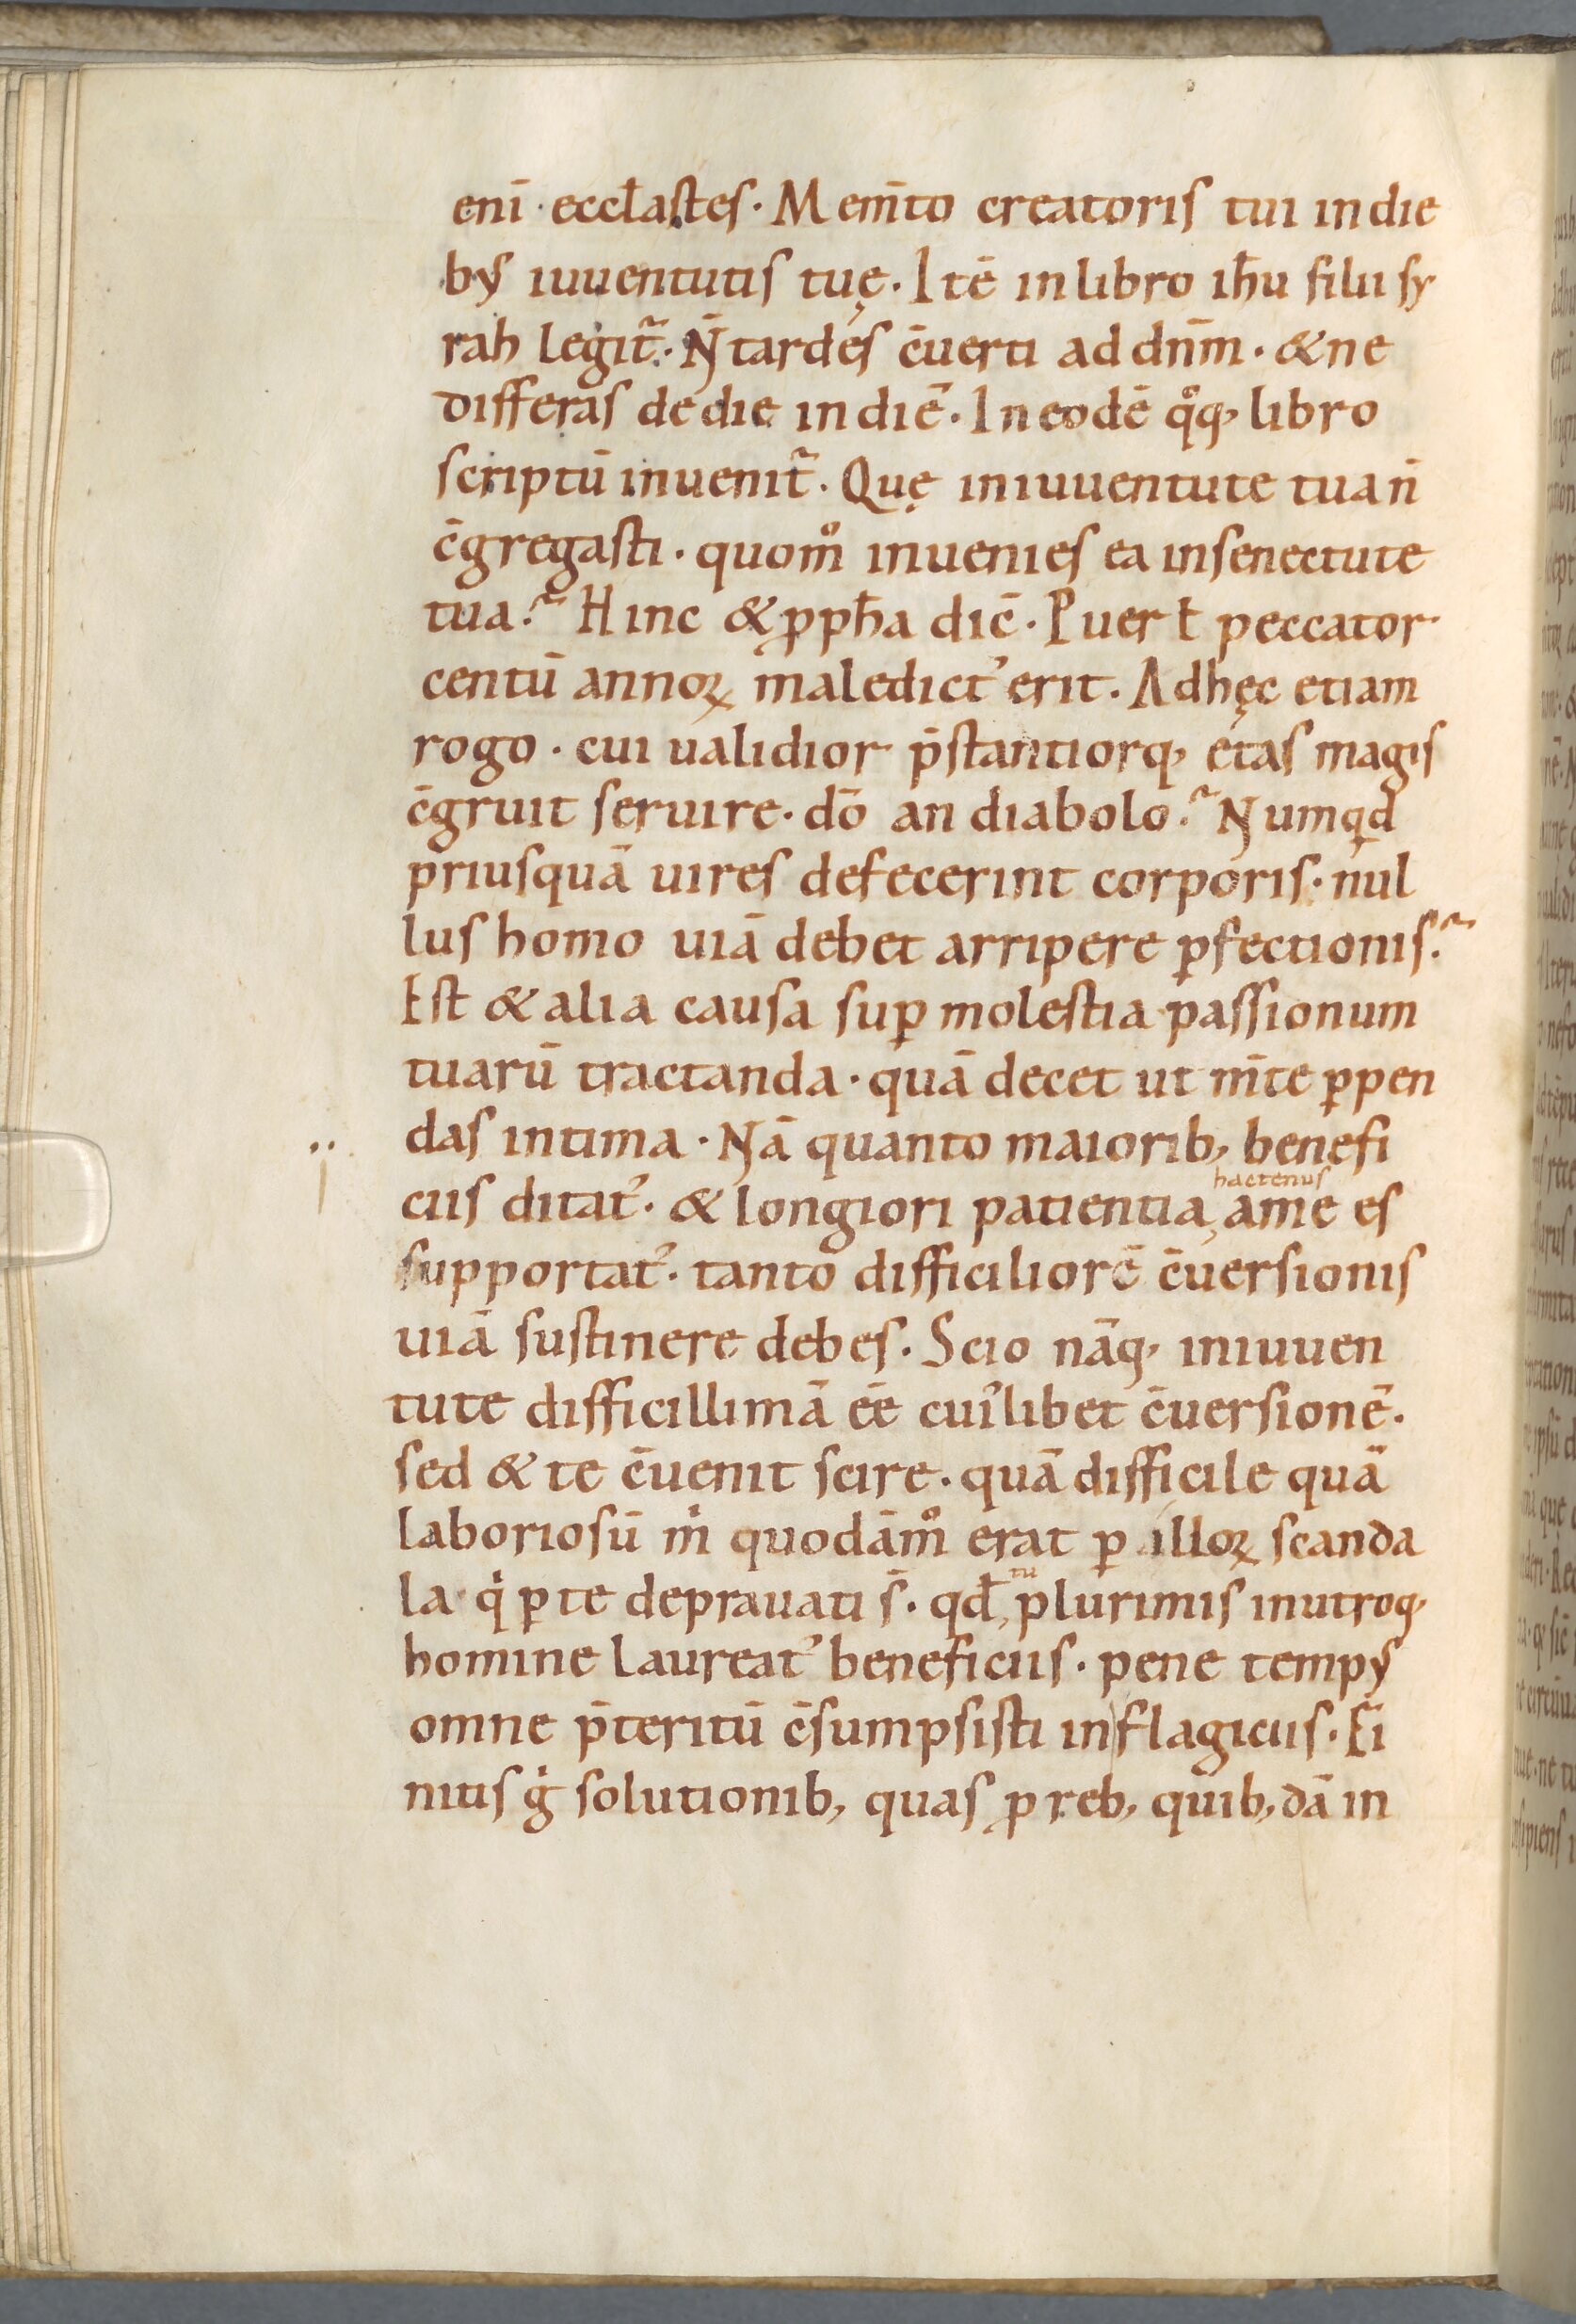 enī · eccƚastes · Mem̄to creatoris tui in die
bꝰ iuuentutis tuę · Itē in libro ih̄u filii sy
rah legit᷒ · N̄ tardes c̄uerti ad dn̄m · & ne
differas de die in diē · In eodē qͦq, libro
scriptū inuenit᷒ · Quę in iuuentute tua n̄
c̄gregasti · quom̊ inuenies ea in senectute
tua? Hinc & ꝓph̄a dic̄ · Puer ƚ peccator
centū annoꝝ maledict᾿ erit · Ad hęc etiam
rogo · cui ualidior p̄stantiorq, ętas magis
c̄gruit seruire · dō an diabolo? Numqͥd
priusquā uires defecerint corporis · nul
lus homo uiā debet arripere ꝑfectionis?
Est & alia causa suꝑ molestia passionum
tuarū tractanda · quā decet ut m̄te ꝑpen
das intima · Nā quanto maiorib, benefi
ciis ditat᾿ · & longiori patientia hactenus a me es
supportat᾿ · tanto difficiliorē c̄uersionis
uiā sustinere debes · Scio nāq, in iuuen
tute difficillimā ēē cui᾿libet c̄uersionē ·
sed & te c̄uenit scire · quā difficile quā
laboriosū mͥ quodām̊ erat ꝑ illoꝝ scanda
la qͥ ꝑ te deprauati s̄ · qđ tu plurimis in utroq,
homine laureat᾿ beneficiis · pene tempꝰ
omne p̄teritū c̄sumpsisti in flagiciis · Fi
nitis gͥ solutionib, quas ꝓ reb, quib,dā in